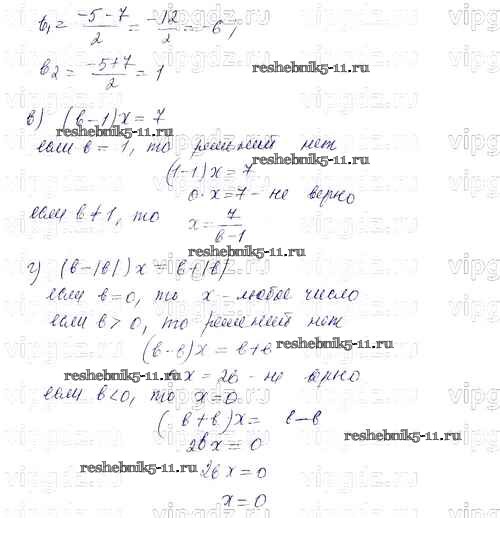 b₁ = (-5-7)/2 = -12/2 = -6;
b₂ = (-5+7)/2 = 1
reshebnik5-11.ru
в) (b-1)x = 7
reshebnik5-11.ru
если b = 1, то решений нет
reshebnik5-11.ru
(1-1)x = 7
0·x = 7 - не верно
если b ≠ 1, то x = 7/(b-1)
reshebnik5-11.ru
г) (b-|b|)x = b+|b|
если b = 0, то x - любое число
если b > 0, то решений нет
(b-b)x = b+b
reshebnik5-11.ru
x = 2b - не верно
reshebnik5-11.ru
если b < 0, то x = 0
(b+b)x = b-b
reshebnik5-11.ru
2bx = 0
reshebnik5-11.ru
2bx = 0
x = 0
vipgdz.ru